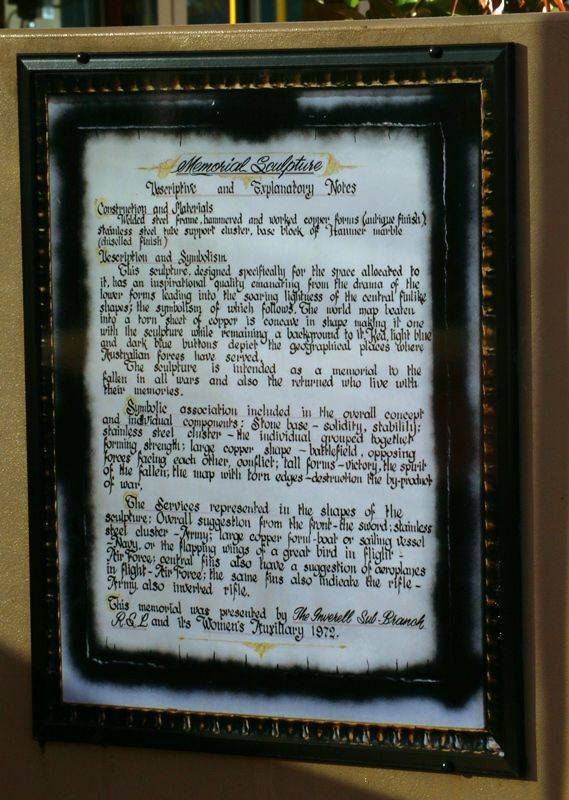 Memorial Sculpture
Descriptive and Explanatory Notes
Construction and Materials
Welded steel frame, hammered and worked copper forms (antique finish),
stainless steel tube support cluster, base block of Hanmer marble
(chiselled finish)
Description and Symbolism
This sculpture, designed specifically for the space allocated to
it, has an inspirational quality emanating from the drama of the
lower forms leading into the soaring lightness of the central finlike
shapes; the symbolism of which follows. The world map beaten
into a torn sheet of copper is concave in shape making it one
with the sculpture while remaining a background to it. Red, light blue
and dark blue buttons depict the geographical places where
Australian forces have served.
The sculpture is intended as a memorial to the
fallen in all wars and also the returned who live with
their memories.
Symbolic association included in the overall concept
and individual components: Stone base - solidity, stability;
stainless steel cluster - the individual grouped together
forming strength; large copper shape - battlefield, opposing
forces facing each other, conflict; tall forms - victory, the spirit
of the fallen; the map with torn edges - destruction the by-product
of war.
The Services represented in the shapes of the
sculpture: Overall suggestion from the front - the sword; stainless
steel cluster - Army; large copper form - boat or sailing vessel
- Navy, or the flapping wings of a great bird in flight -
Air Force; central fins also have a suggestion of aeroplanes
in flight - Air Force; the same fins also indicate the rifle -
Army also inverted rifle.
This memorial was presented by The Inverell Sub-Branch
R.S.L. and its Women's Auxiliary 1972.